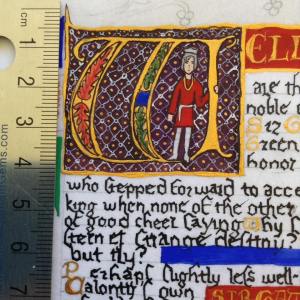 WELL
are th
noble
Sir G
Green
honor
who stepped forward to acce
king when none of the other
of good cheer saying why s
stern or strange destiny?
but try?
Perhaps slightly less well-
Own
cm
1
2
3
4
5
6
7